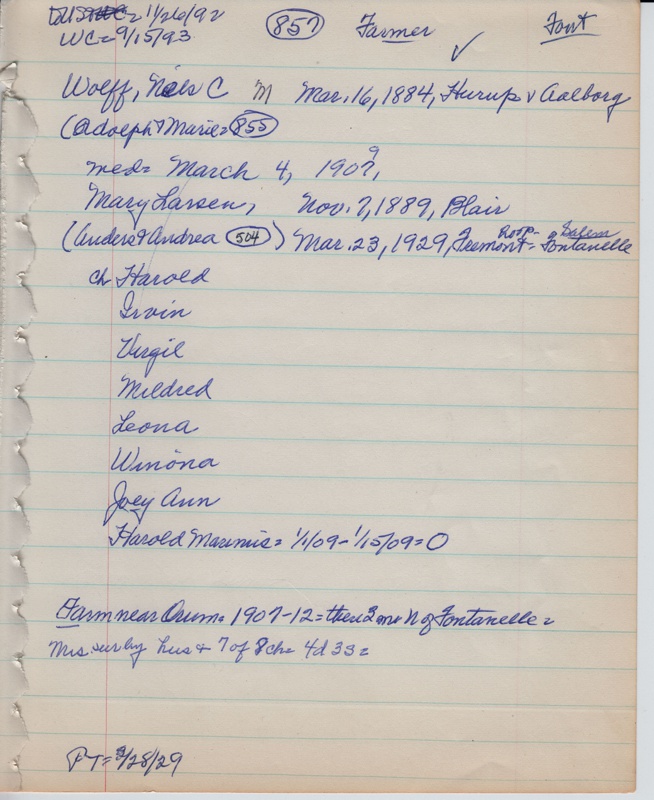 = 11/26/92 (857) Farmer Font
WC = 9/15/93 ✓
Wolff, Niels C M Mar. 16, 1884, Hurup v Aalborg
(Adolph + Marie = 855)
med = March 4, 1907, 9
Mary Larsen, Nov. 7, 1889, Blair
(Anders + Andrea 504) Mar. 23, 1929, Fremont Hosp = Salem Fontanelle
ch Harold
Irvin
Virgil
Mildred
Leona
Winona
Joey Ann
Harold Marinus = 1/1/09 - 1/15/09 = 0
Farm near Orum = 1907-12 = then 2 mi N of Fontanelle =
Mrs. sur by hus + 7 of 8 ch = 4d 3s =
PT = 3/28/29